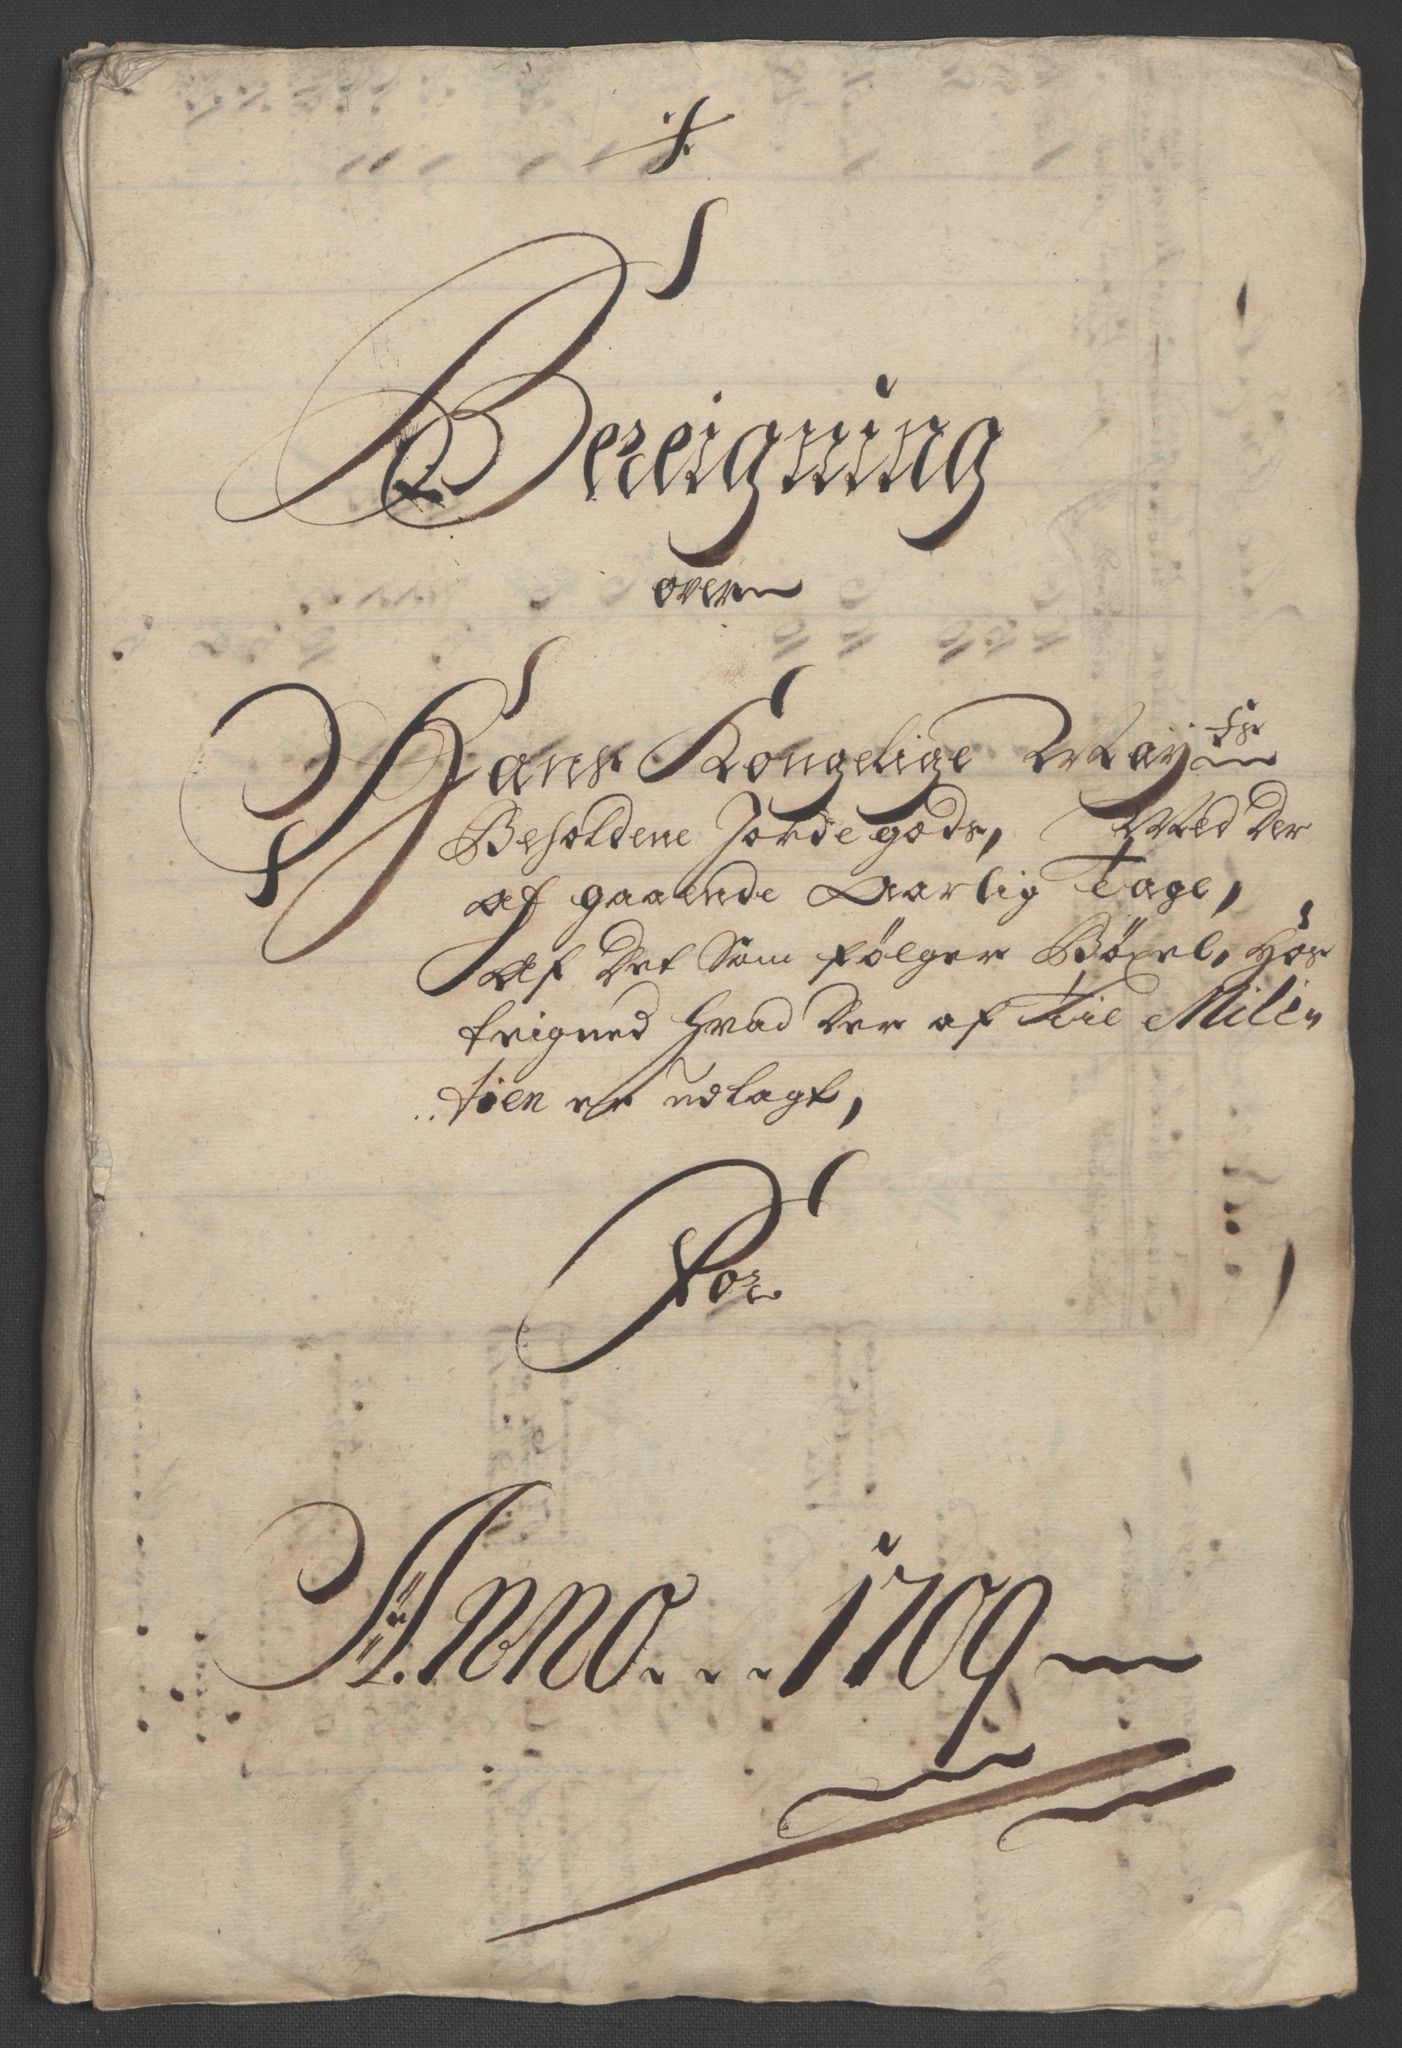 Bereigning
over
Hans Kongelige May.ts
Beholdene Jordegods, Med Der
af gaaende Aarlig Tage,
af Det Som følger Böxel, Hos
teigned hvad Der af Til Mili
tien er udlagt,
For
Anno... 1709